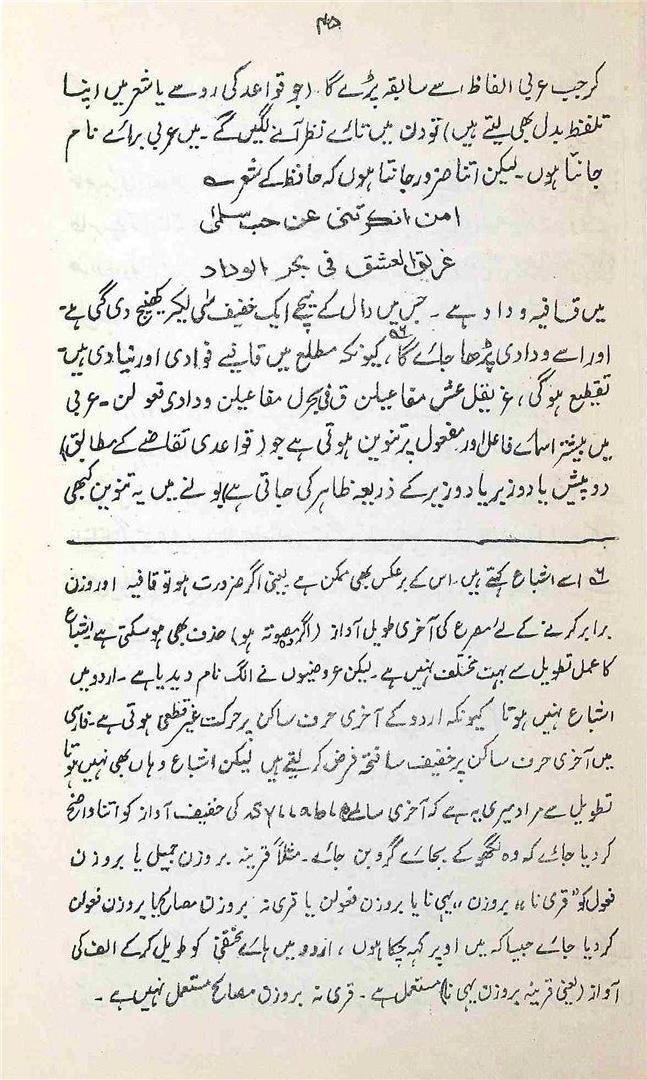 ۴۵
کر جب عربی الفاظ اسے سابقہ پڑے گا (جو قواعد کی رو سے یا شعر میں اپنا
تلفظ بدل بھی لیتے ہیں) تو دن میں تارے نظر آنے لگیں گے۔ میں عربی برائے نام
جانتا ہوں۔ لیکن اتنا ضرور جانتا ہوں کہ حافظ کے شعر ے
امن انکرتنی عن حب سلمیٰ
غریق العشق فی بحر الوداد
میں قافیہ وداد ہے۔ جس میں دال کے نیچے ایک خفیف سی لکیر کھینچ دی گئی ہے۔
اور اسے ودادی پڑھا جائے گا۹۶، کیونکہ مطلع میں قافیے فوادی اور نیادی ہیں۔
تقطیع ہوگی، غریقل عش مفاعیلن ق فی بحرل مفاعیلن ودادی فعولن۔ عربی
میں بیشتر اسمائے فاعل اور مفعول پر تنوین ہوتی ہے جو (قواعدی تقاضے کے مطابق)
دو پیش یا دو زبر یا دو زیر کے ذریعہ ظاہر کی جاتی ہے) بولنے میں یہ تنوین کبھی
۹۶ اسے اشباع کہتے ہیں۔ اس کے برعکس بھی ممکن ہے یعنی اگر ضرورت ہو تو قافیہ اور وزن
برابر کرنے کے لئے مصرع کی آخری طویل آواز (اگر وہ مصوتہ ہو) حذف بھی ہو سکتی ہے اشباع
کا عمل تطویل سے بہت مختلف نہیں ہے۔ لیکن عروضیوں نے الگ نام دیدیا ہے۔ اردو میں
اشباع نہیں ہوتا کیونکہ اردو کے آخری حرف ساکن پر حرکت غیر قطعی ہوتی ہے۔ فارسی
میں آخری حرف ساکن پر خفیف سا فتحہ فرض کر لیتے ہیں لیکن اشباع وہاں بھی نہیں ہوتا
تطویل سے مراد میری یہ ہے کہ آخری سالمے کی خفیف آواز کو اتنا واضح
کر دیا جائے کہ وہ لگھو کے بجائے گرو بن جائے۔ مثلاً قرینہ بروزن جمیل یا بروزن
فعول کو "قری نا" بروزن "یہی نا یا بروزن فعولن یا قری نہ بروزن مصالح یا بروزن فعولن
کر دیا جائے جیسا کہ میں اوپر کہہ چکا ہوں، اردو میں ہائے مختفی کو طویل کر کے الف کی
آواز (یعنی قرینہ بروزن یہی نا) مستعمل ہے۔ قری نہ بروزن مصالح مستعمل نہیں ہے۔